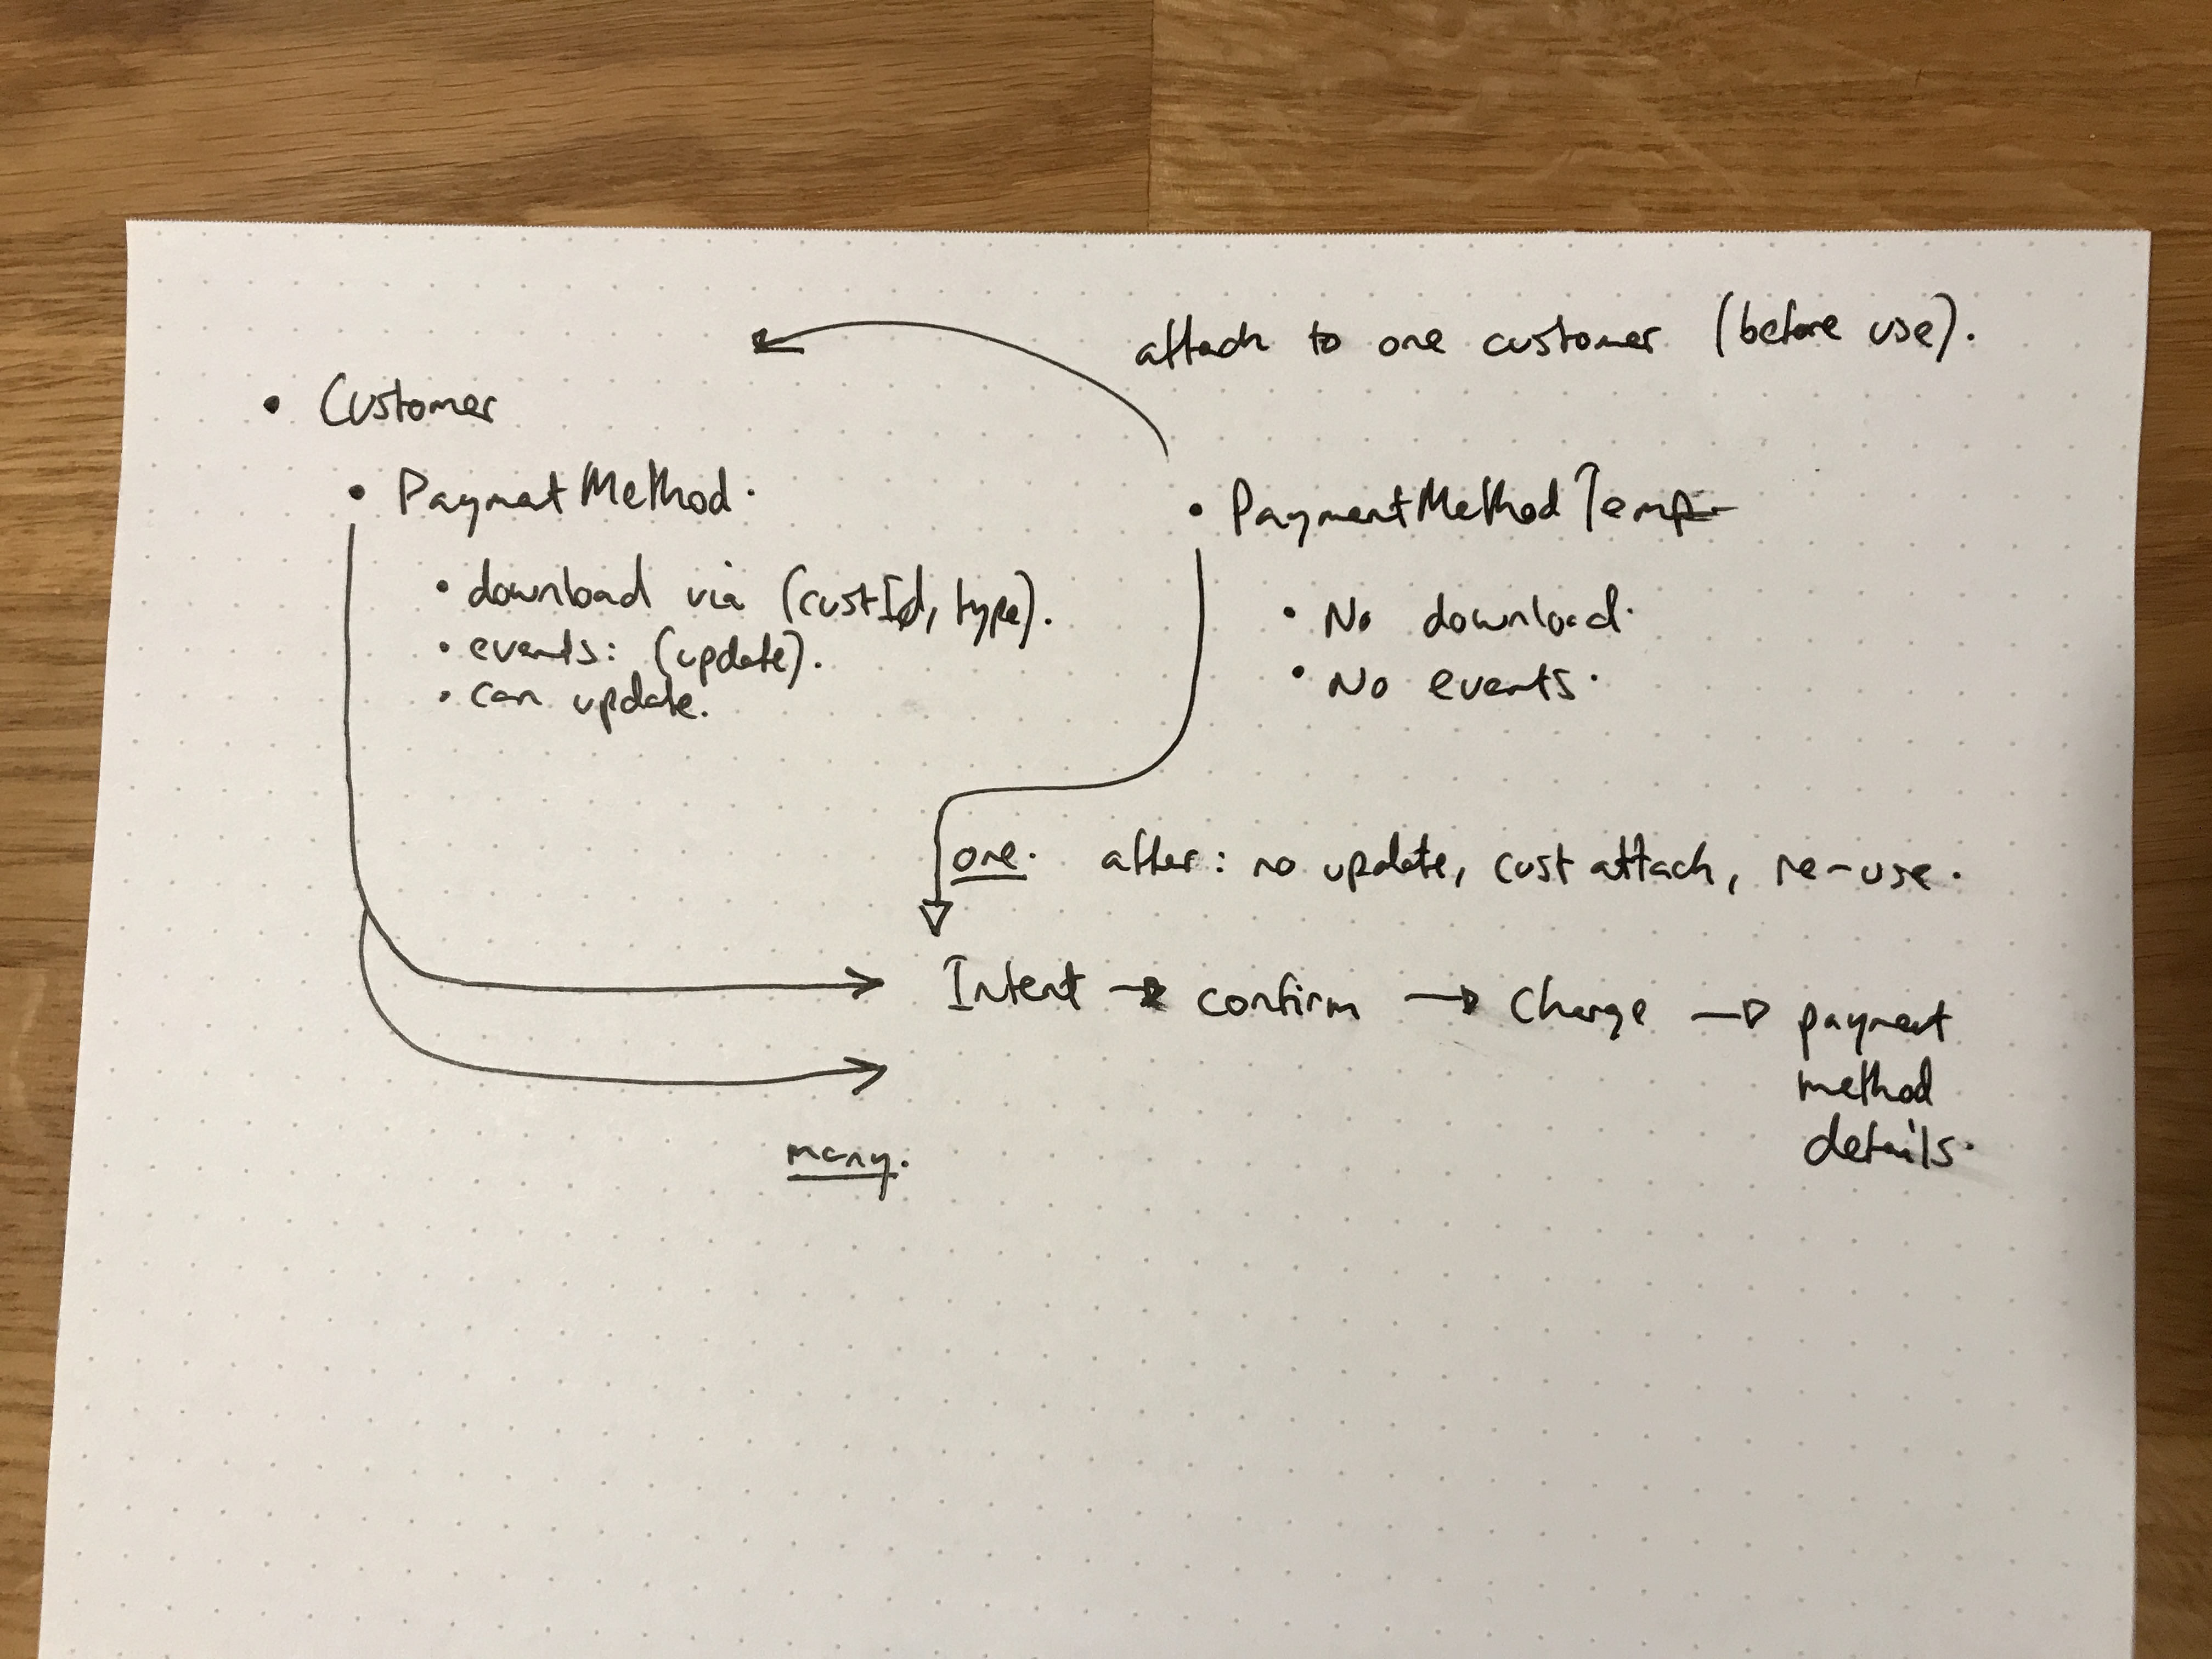 attach to one customer (before use).
• Customer
• PaymentMethod.
• download via (custId, type).
• events: (update).
• can update.
• PaymentMethodTemp
• No download.
• No events.
one. after: no update, cust attach, re-use.
Intent → confirm → Charge → payment
method
details.
many.